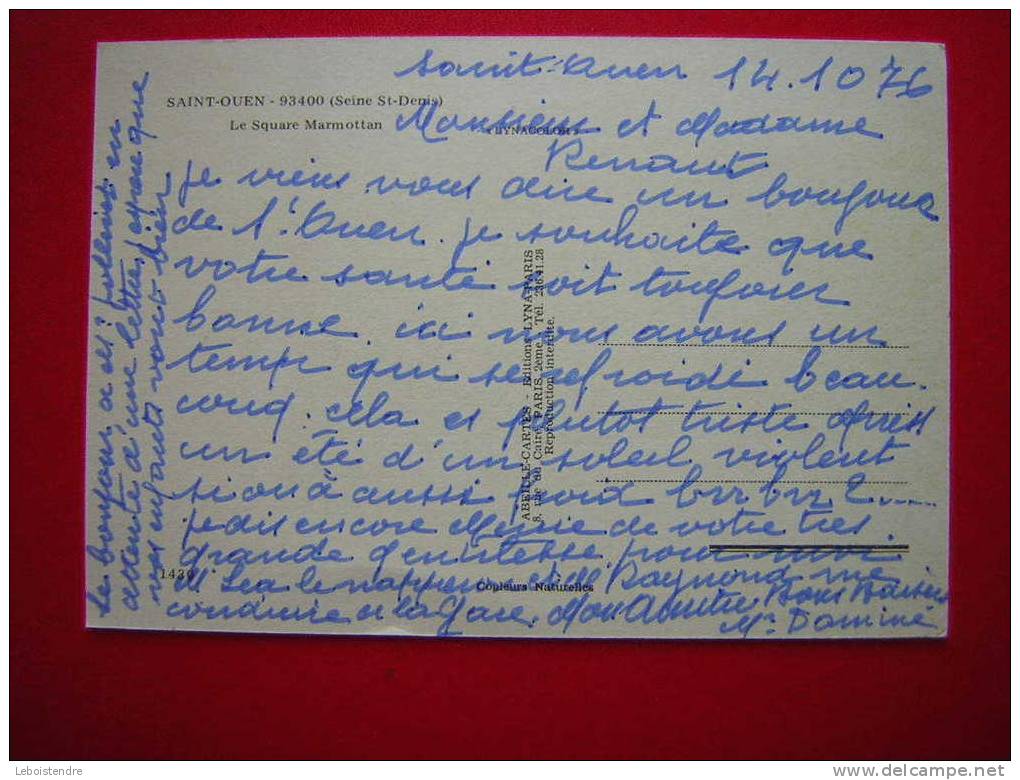 Saint-Ouen 14.10 76
SAINT-OUEN - 93400 (Seine St-Denis)
Le Square Marmottan
« LYNACOLOR »
Monsieur et Madame
Renault
je viens vous dire un bonjour
de St. Ouen. je souhaite que
votre santé soit toujours
bonne ici nous avons un
temp qui serefroidi beau.
coup. cela et plutot triste Après
un été d'un soleil violent
si on a aussi froid brr brr
je dis encore Merçie de votre tres
grande gentitesse pour moi
Raymond me
conduire a la Gare. Mon Amitié Bons Baisers
Me Domine
le bonjour a ces
attente d'une lettre, espère que
vos enfants vont bien
ABEILLE-CARTES - Editions LYNA-PARIS
8, rue du Caire, PARIS 2ème Tél. 236.41.28
Reproduction interdite.
Couleurs Naturelles
Leboistendre
http://www.delcampe.net